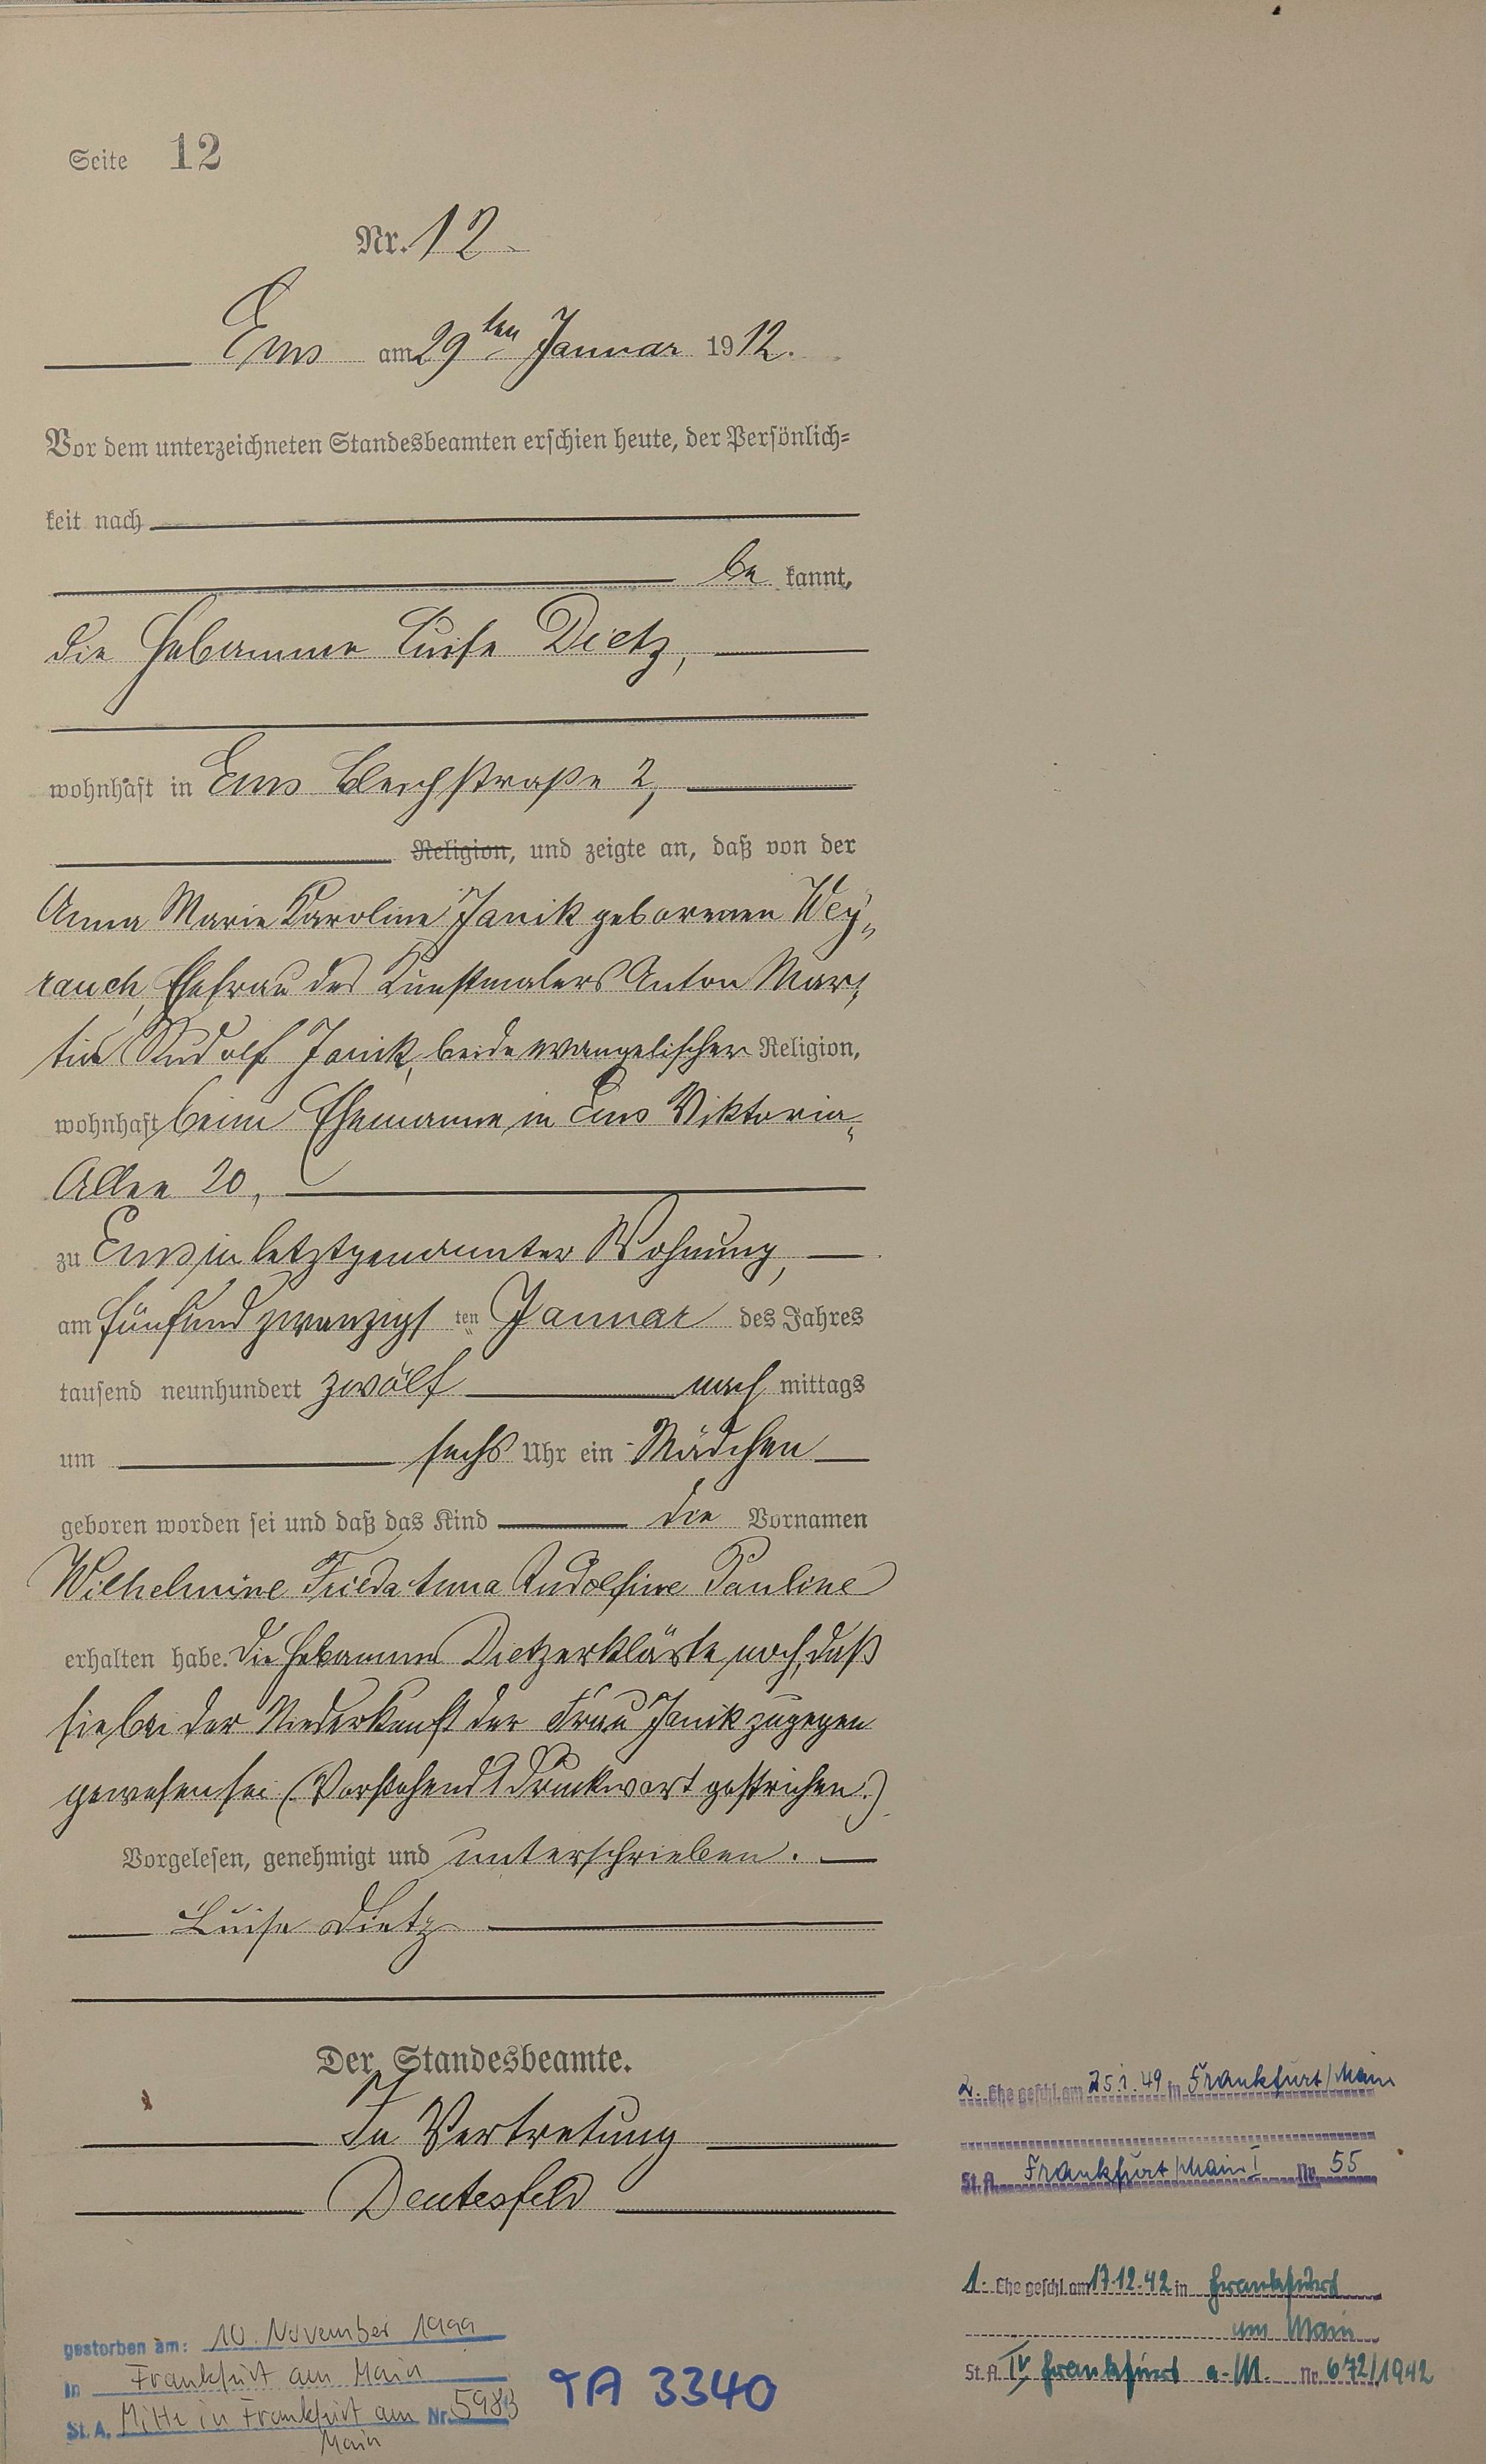 Seite 12
Nr. 12
Ems am 29ten Januar 1912.
Vor dem unterzeichneten Standesbeamten erschien heute, der Persönlich-
keit nach
be kannt,
die Hebamme Luise Dietz,
wohnhaft in Ems Bleichstraße 2,
Religion, und zeigte an, daß von der
Anna Marie Karoline Janik geborenen Wey-
rauch, Ehefrau des Kunstmalers Anton Mar-
tin Rudolf Janik, beide evangelischer Religion,
wohnhaft beim Ehemanne in Ems Viktoria-
Allee 20,
zu Ems in letztgenannter Wohnung,
am fünfundzwanzigsten Januar des Jahres
tausend neunhundert zwölf nach mittags
um sechs Uhr ein Mädchen
geboren worden sei und daß das Kind die Vornamen
Wilhelmine Frieda Anna Rudolfine Pauline
erhalten habe. Die Hebamme Dietz erklärte noch, daß
sie bei der Niederkunft der Frau Janik zugegen
gewesen sei. (Vorstehend 1 Druckwort gestrichen.)
Vorgelesen, genehmigt und unterschrieben.
Luise Dietz
Der Standesbeamte.
In Vertretung
Deutesfeld
2. Ehe geschl. am 25.1.49 in Frankfurt/Main
St. A. Frankfurt/Main I Nr. 55
1. Ehe geschl. am 17.12.42 in Frankfurt
am Main
St. A. IV Frankfurt a.M. Nr. 672/1942
gestorben am: 10. November 1999
in Frankfurt am Main
St. A. Mitte in Frankfurt am Nr. 5983
Main
TA 3340